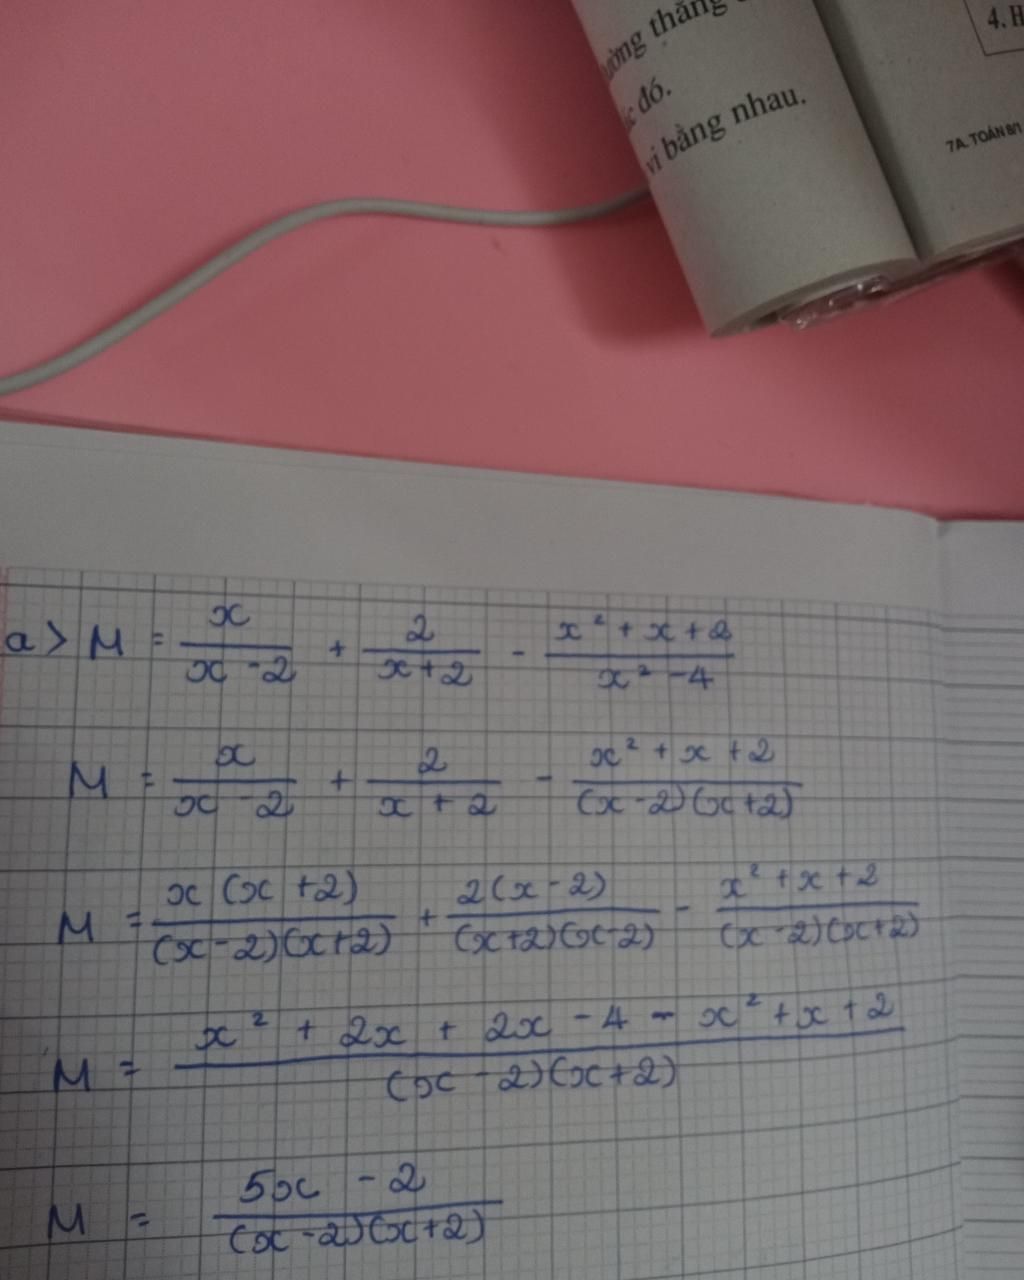 ường thẳng
đó.
vi bằng nhau.
4. H
7A. TOÁN 8/1
a> M = x/(x - 2) + 2/(x + 2) - (x² + x + 2)/(x² - 4)
M = x/(x - 2) + 2/(x + 2) - (x² + x + 2)/((x - 2)(x + 2))
M = x(x + 2)/((x - 2)(x + 2)) + 2(x - 2)/((x + 2)(x - 2)) - (x² + x + 2)/((x - 2)(x + 2))
M = (x² + 2x + 2x - 4 - x² + x + 2)/((x - 2)(x + 2))
M = (5x - 2)/((x - 2)(x + 2))